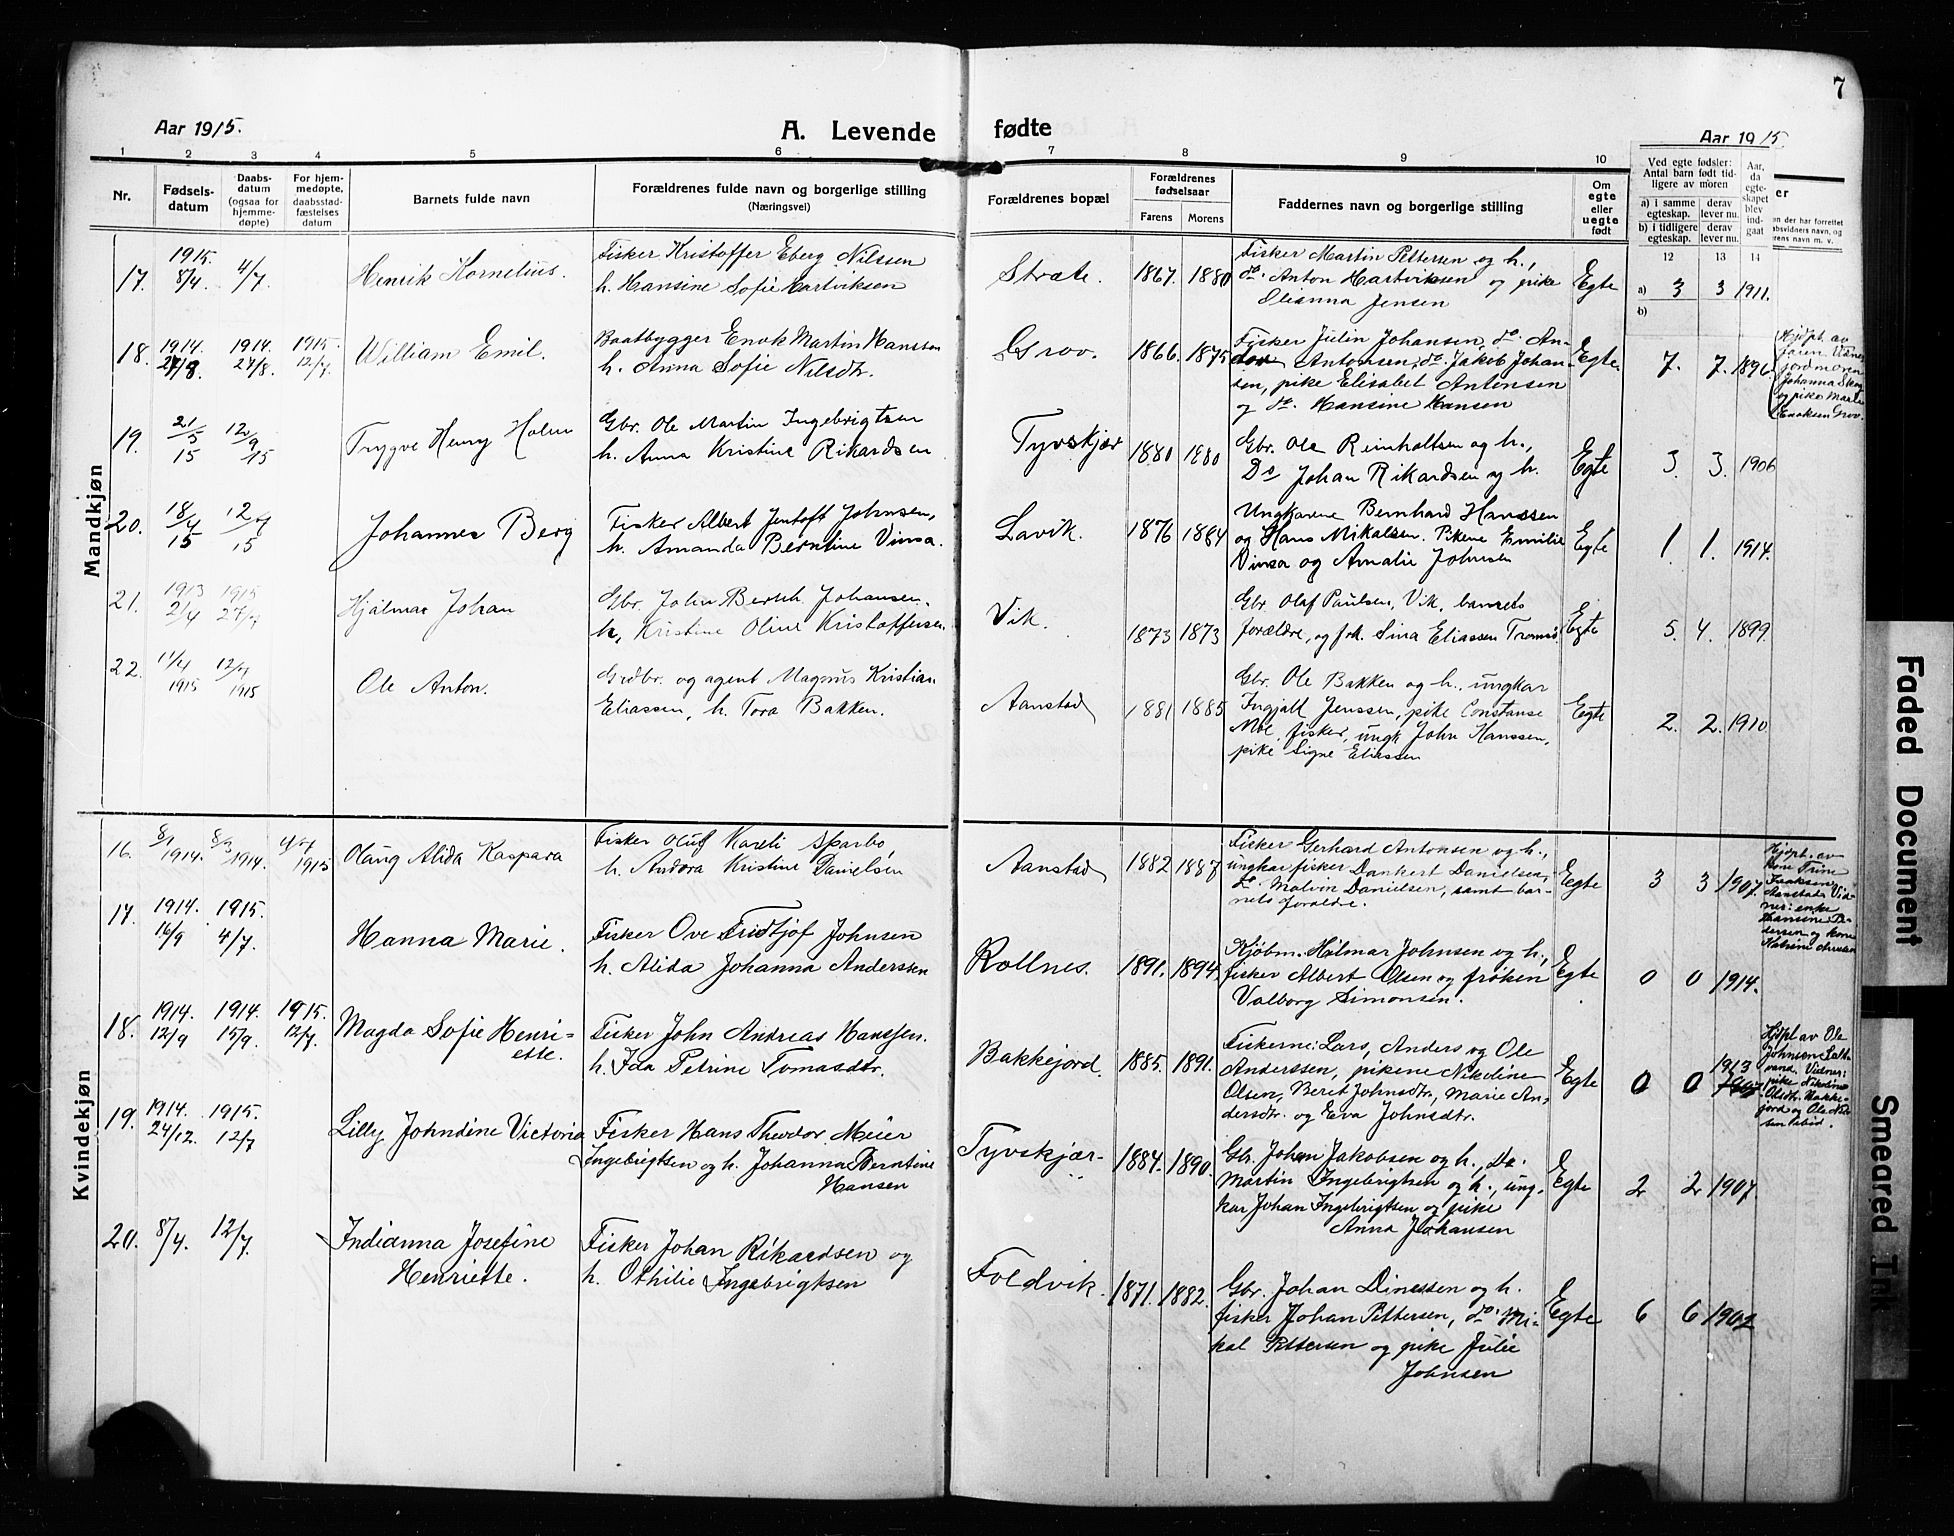 7
Aar 1915.
A. Levende fødte
Aar 1915
1 2 3 4 5 6 7 8 9 10
Nr.
Fødsels-
datum
Daabs-
datum
(ogsaa for
hjemme-
døpte)
For hjem-
medøpte,
daabsstad-
fæstelses
datum
Barnets fulde navn
Forældrenes fulde navn og borgerlige stilling
(Næringsvei)
Forældrenes bopæl
Forældrenes
fødselsaar
Farens Morens
Faddernes navn og borgerlige stilling
Om
egte
eller
uegte
født
Ved egte fødsler:
Antal barn født tid-
ligere av moren
a) i samme
egteskap.
derav
lever nu.
b) i tidligere
egteskap.
derav
lever nu.
Aar,
da
egte-
skapet
blev
ind-
gaat
12 13 14
er
en der har forrettet
absvidners navn, og
erens navn m. v.
Mandkjøn
17. 1915. 8/4 4/7 Henrik Kornelius.
Fisker Kristoffer Eberg Nilssen
h. Hansine Sofie Hartviksen
Strate. 1867. 1880
Fisker Martin Pettersen og h.,
do. Anton Hartviksen og pike
Oleanna Jensen
Egte a) 3 3 1911.
b)
18. 1914. 27/8 1914. 27/8. 1915. 12/7. William Emil.
Baatbygger Enok Martin Hanssen
h. Anna Sofie Nilsdtr.
Grov. 1866. 1875
Fisker Julin Johansen, do. An-
Antonsen, do. Jakob Johan-
sen, pike Elisabet Antonsen
og do. Hansine Hansen
Egte 7. 7. 1896.
Hjdpt. av
faren. Vidner
jordmoren
Johanna Skog
og pike Marie
Enoksen Grov.
19. 21/5 15 12/9 15 Trygve Henry Holm
Gbr. Ole Martin Ingebrigtsen
h. Anna Kristine Rikardsen
Tyvskjær 1880 1880
Gbr. Ole Reinholtsen og h.,
Do Johan Rikardsen og h.
Egte 3. 3. 1906
20. 18/4 15 12/9 15 Johannes Berg
Fisker Albert Jentoft Johnsen,
h. Amanda Berntine Vinsa.
Lavik. 1876 1884
Ungkarene Bernhard Hanssen
og Hans Mikalsen. Pikene Emilie
Vinsa og Amalie Johnsen
Egte 1 1. 1914.
21. 1913 2/4 1915 27/9 Hjalmar Johan
Gbr. John Berteh. Johansen.
h. Kristine Oline Kristoffersen.
Vik. 1873 1873
Gbr. Olaf Paulsen, Vik, barnets
forældre, og frk. Sina Eliassen Tromsø
Egte 5. 4. 1899.
22. 11/4 1915 12/9 1915 Ole Anton.
Grdbr. og agent Magnus Kristian
Eliassen, h. Tora Bakken.
Aanstad 1881 1885
Gbr. Ole Bakken og h. ungkar
Ingjalt Jenssen, pike Constanse
Moe, fisker, ungk John Hanssen,
pike Signe Eliassen
Egte 2. 2. 1910
Kvindekjøn
16. 8/1 1914. 8/3 1914. 4/7 1915 Olaug Alida Kaspara
Fisker Oluf Kareli Sparbo,
h. Andora Kristine Danielsen
Aanstad 1882 1887
Fisker Gerhard Antonsen og h.,
ungkar fisker Dankert Danielsen,
do. Malvin Danielsen, samt bar-
nets forældre.
Egte 3 3 1907.
Hjdpt. av
kone Trine
Isaksen
Aanstad. Vid-
ner: enke
Hansine Pe-
dersen og kone
17. 1914. 16/9 1915. 4/7. Hanna Marie.
Fisker Ove Fridtjof Johnsen
h. Alida Johanna Anderssen
Rollnes. 1891. 1894.
Kjøbm. Hilmar Johnsen og h.,
fisker Albert Olsen og frøken
Valborg Simonsen.
Egte 0 0 1914.
18. 1914. 12/9 1914. 15/9. 1915. 12/7. Magda Sofie Henri-
ette.
Fisker John Andreas Hanssen.
h. Ida Petrine Tomasdtr.
Bakkejord. 1885. 1891.
Fiskerne: Lars, Anders og Ole
Anderssen, pikene Nikoline
Olsen, Beret Johnsdtr, Marie An-
dersdtr. og Eva Johnsdtr.
Egte 0 0 1913
Hjdpt av Ole
Johnsen Salt-
vand. Vidner:
pike Nikoline
Olsdtr. Bakke-
jord og Ole Niel-
19. 1914. 24/12. 1915. 12/7 Lilly Johndine Victoria
Fisker Hans Theodor Meier
Ingebrigtsen og h. Johanna Berntine
Hansen
Tyvskjær. 1884. 1890.
Gbr. Johan Jakobsen og h., Do.
Martin Ingebrigtsen og h., ung-
kar Johan Ingebrigtsen og pike
Anna Johansen
Egte 2 2 1907.
20. 8/4. 12/7. Indianna Josefine
Henriette.
Fisker Johan Rikardsen og
h. Othilie Ingebrigtsen
Foldvik. 1871. 1882.
Gbr. Johan Dinessen og h.
fisker Johan Pettersen, do. Mi-
kal Pettersen og pike Julie
Johnsen
Egte 6 6 1902
Faded Document
Smeared Ink